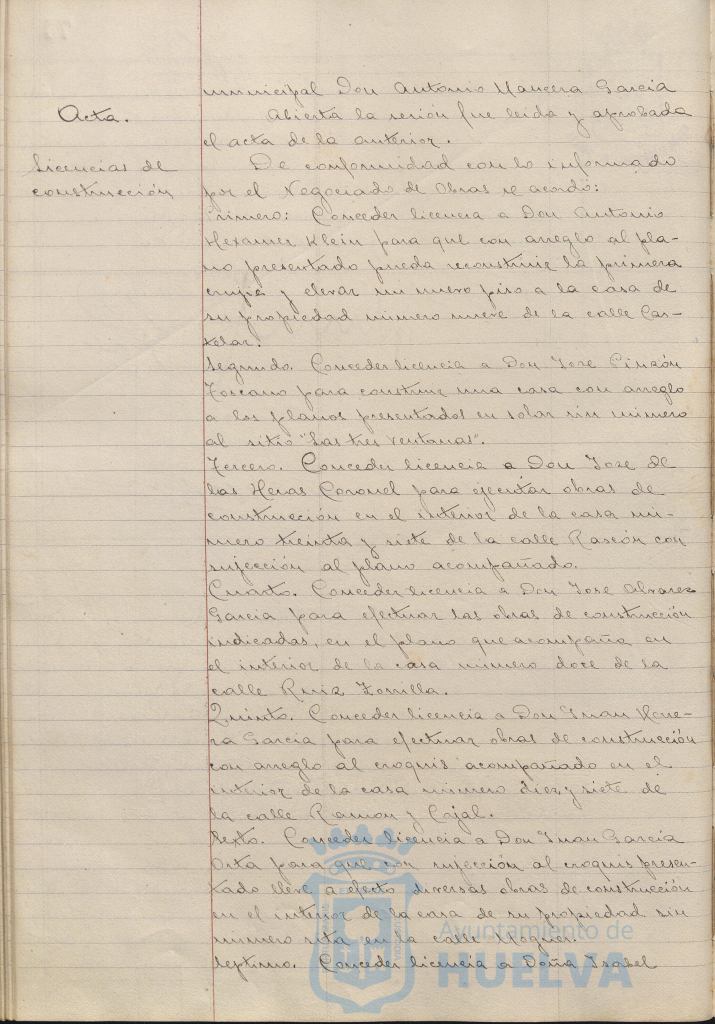 municipal Don Antonio Mancera Garcia
Acta.
Abierta la sesión fue leida y aprobada
el acta de la anterior.
Licencias de
construcción
De conformidad con lo informado
por el Negociado de Obras se acordó:
Primero: Conceder licencia a Don Antonio
Hexamer Klein para que con arreglo al pla-
no presentado pueda reconstruir la primera
crujia y elevar un nuevo piso a la casa de
su propiedad número nueve de la calle Cas-
telar.
Segundo. Conceder licencia a Don Jose Pinzón
Toscano para construir una casa con arreglo
a los planos presentados en solar sin número
al sitio "Las tres Ventanas".
Tercero. Conceder licencia a Don Jose de
las Heras Coronel para ejecutar obras de
construcción en el interior de la casa nú-
mero treinta y siete de la calle Rascón con
sujección al plano acompañado.
Cuarto. Conceder licencia a Don Jose Alvarez
Garcia para efectuar las obras de construcción
indicadas, en el plano que acompaña en
el interior de la casa número doce de la
calle Ruiz Zorrilla.
Quinto. Conceder licencia a Don Juan Herre-
ra Garcia para efectuar obras de construcción
con arreglo al croquis acompañado en el
interior de la casa número diez y siete de
la calle Ramon y Cajal.
Sexto. Conceder licencia a Don Juan Garcia
Orta para que con sujección al croquis presen-
tado lleve a efecto diversas obras de construcción
en el interior de la casa de su propiedad sin
número sita en la calle Moguer.
Septimo. Conceder licencia a Doña Isabel
Ayuntamiento de
HUELVA